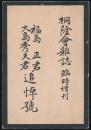 桐陰會雜誌
臨時增刊
福島正君
大島秀夫君
追悼號